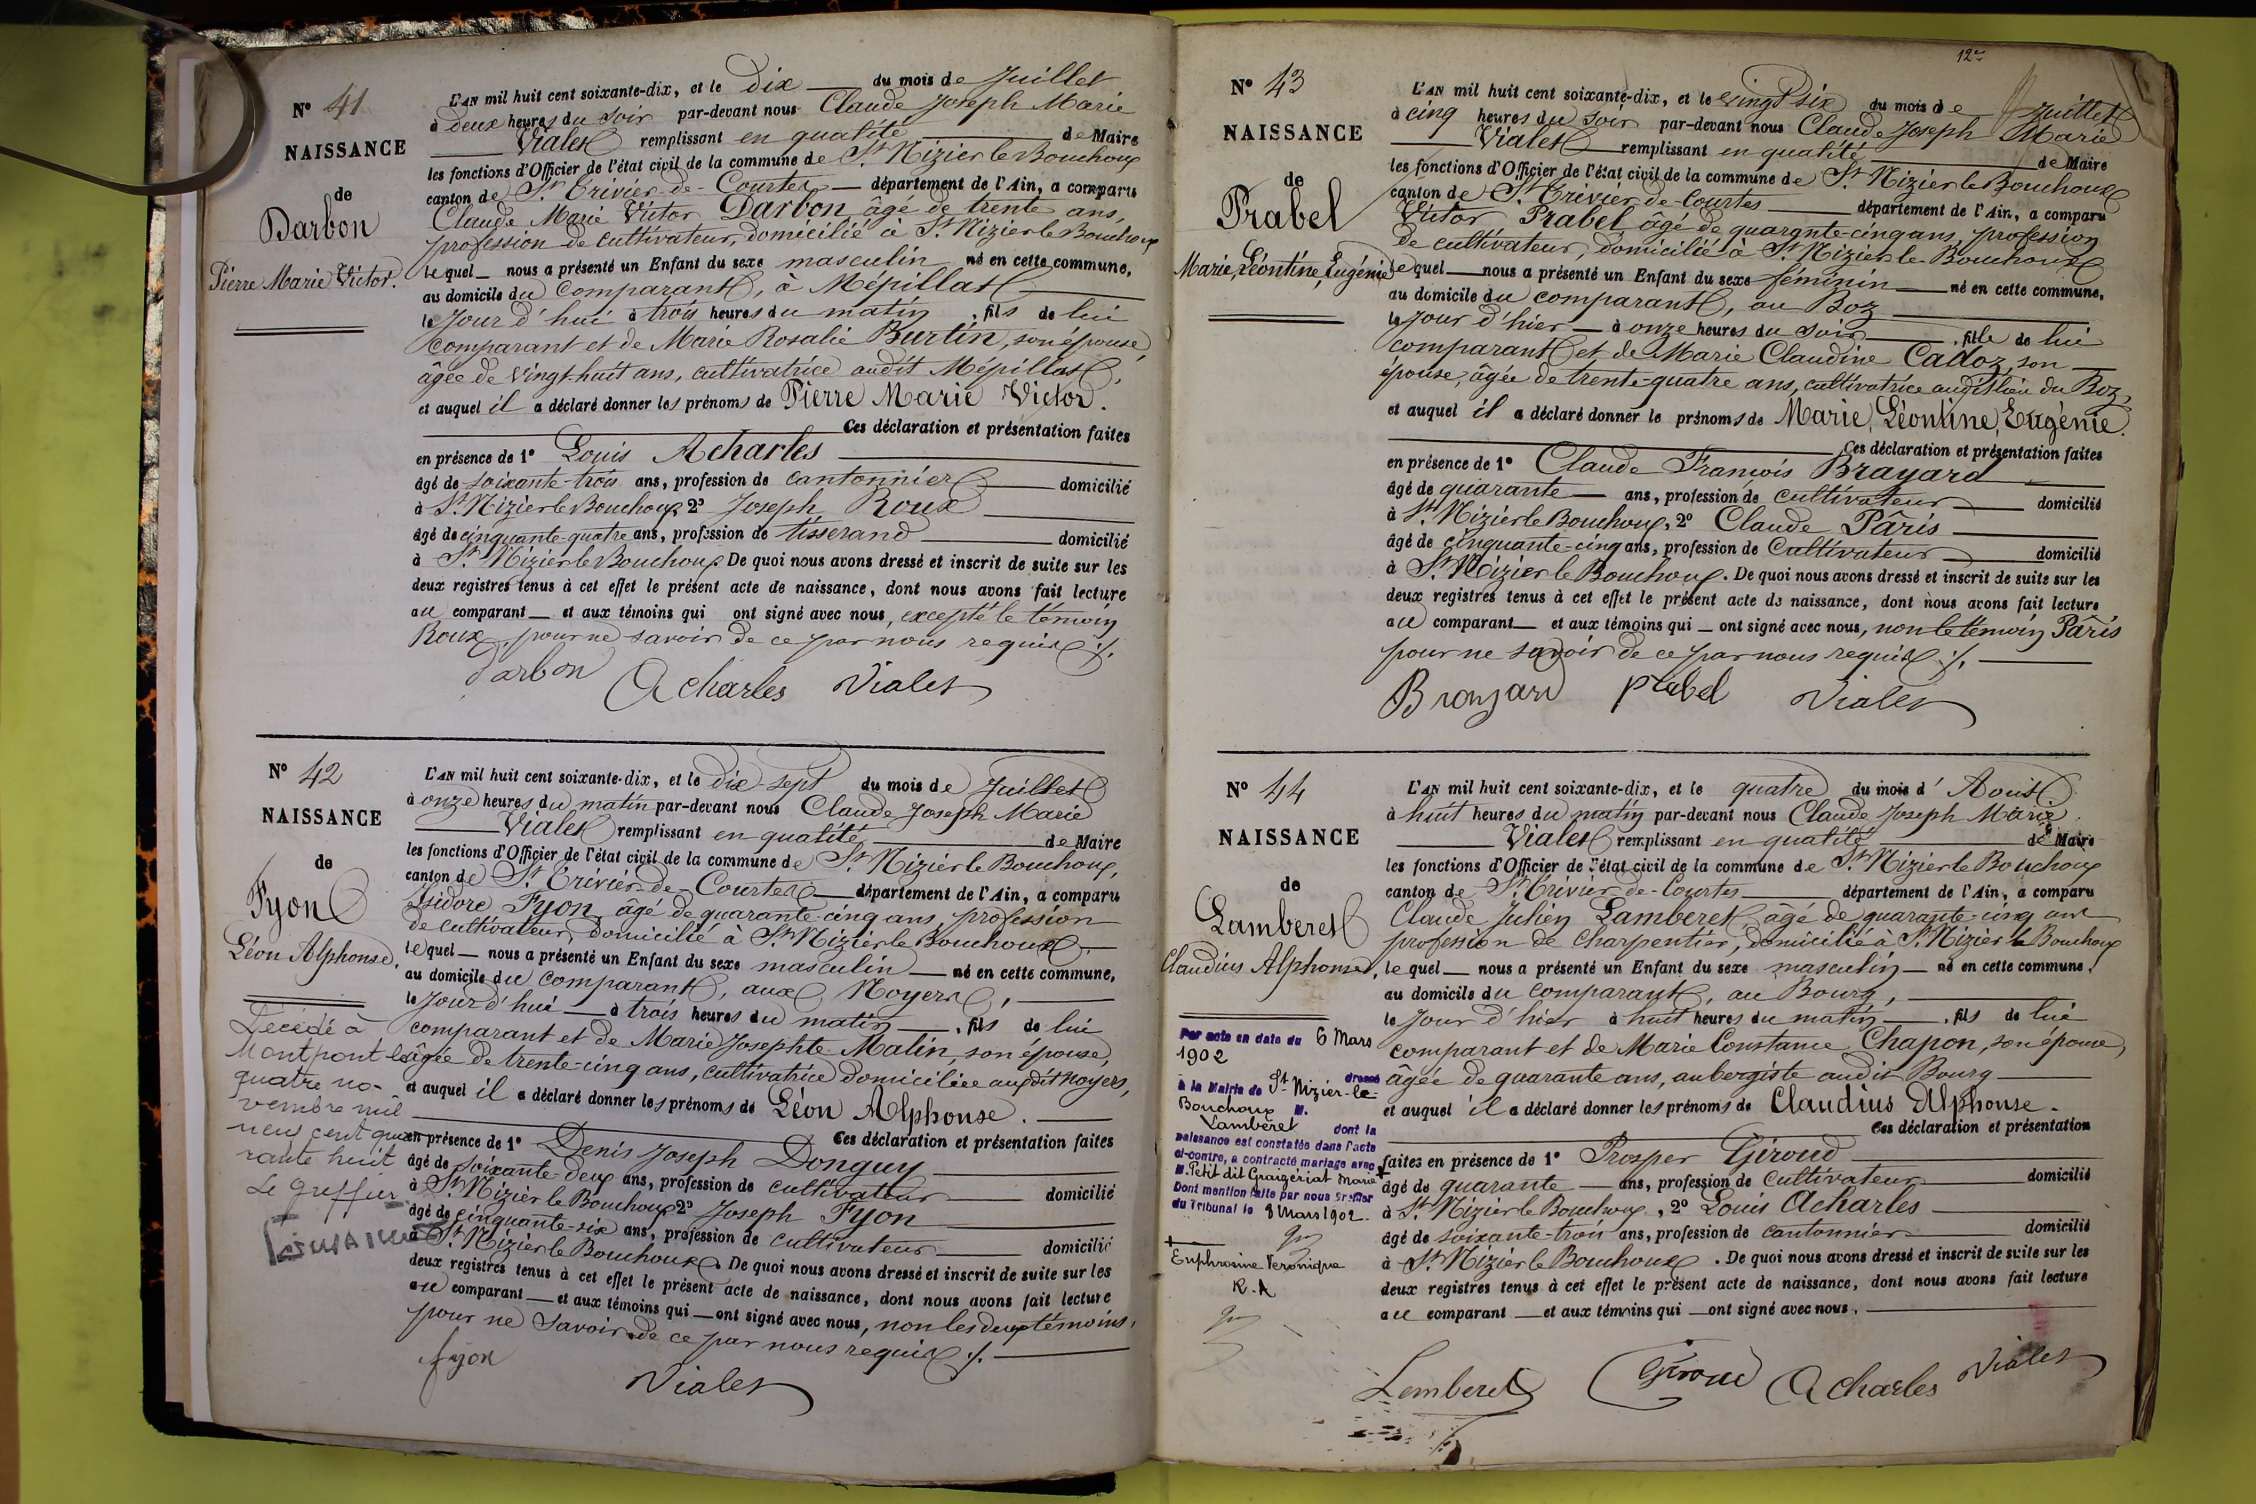 N° 41
NAISSANCE
de
Darbon
Pierre Marie Victor.
L'AN mil huit cent soixante-dix, et le Dix du mois de Juillet
à deux heures du soir par-devant nous Claude Joseph Marie
Vialet remplissant en qualité de Maire
les fonctions d'Officier de l'état civil de la commune de St Nizier le Bouchoux
canton de St Trivier-de-Courtes département de l'Ain, a comparu
Claude Marie Victor Darbon âgé de trente ans,
profession de cultivateur, domicilié à St Nizier le Bouchoux
lequel nous a présenté un Enfant du sexe masculin né en cette commune,
au domicile du comparant, à Mépillat
le jour d'hui à trois heures du matin, fils de lui
comparant et de Marie Rosalie Burtin, son épouse,
âgée de vingt-huit ans, cultivatrice audit Mépillat,
et auquel il a déclaré donner les prénoms de Pierre Marie Victor.
Ces déclaration et présentation faites
en présence de 1° Louis Acharles
âgé de soixante-trois ans, profession de cantonnier domicilié
à St Nizier le Bouchoux 2° Joseph Roux
âgé de cinquante-quatre ans, profession de tisserand domicilié
à St Nizier le Bouchoux De quoi nous avons dressé et inscrit de suite sur les
deux registres tenus à cet effet le présent acte de naissance, dont nous avons fait lecture
au comparant et aux témoins qui ont signé avec nous, excepté le témoin
Roux, pour ne savoir de ce par nous requis ./.
Darbon Acharles Vialet
N° 42
NAISSANCE
de
Fyon
Léon Alphonse.
Décédé à
Montpont le
quatre no-
vembre mil
neuf cent qua
rante huit
Le Greffier
L'AN mil huit cent soixante-dix, et le Dix-sept du mois de Juillet
à onze heures du matin par-devant nous Claude Joseph Marie
Vialet remplissant en qualité de Maire
les fonctions d'Officier de l'état civil de la commune de St Nizier le Bouchoux,
canton de St Trivier-de-Courtes département de l'Ain, a comparu
Isidore Fyon, âgé de quarante-cinq ans, profession
de cultivateur, domicilié à St Nizier le Bouchoux
lequel nous a présenté un Enfant du sexe masculin né en cette commune,
au domicile du comparant, aux Noyers,
le jour d'hui à trois heures du matin, fils de lui
comparant et de Marie Josephte Matin, son épouse,
âgée de trente-cinq ans, cultivatrice domiciliée auxdit Noyers,
et auquel il a déclaré donner les prénoms de Léon Alphonse.
Ces déclaration et présentation faites
en présence de 1° Denis Joseph Donguy
âgé de soixante-deux ans, profession de cultivateur domicilié
à St Nizier le Bouchoux 2° Joseph Fyon
âgé de cinquante-six ans, profession de cultivateur domicilié
à St Nizier le Bouchoux. De quoi nous avons dressé et inscrit de suite sur les
deux registres tenus à cet effet le présent acte de naissance, dont nous avons fait lecture
au comparant et aux témoins qui ont signé avec nous, non les deux témoins,
pour ne savoir de ce par nous requis ./.
fyon
Vialet
12
N° 43
NAISSANCE
de
Prabel
Marie, Léontine, Eugénie
L'AN mil huit cent soixante-dix, et le vingt six du mois de Juillet
à cinq heures du soir par-devant nous Claude Joseph Marie
Vialet remplissant en qualité de Maire
les fonctions d'Officier de l'état civil de la commune de St Nizier le Bouchoux
canton de St Trivier-de-Courtes département de l'Ain, a comparu
Victor Prabel, âgé de quarante-cinq ans, profession
de cultivateur, domicilié à St Nizier le Bouchoux
lequel nous a présenté un Enfant du sexe féminin né en cette commune,
au domicile du comparant, au Boz
le jour d'hier à onze heures du soir, fille de lui
comparant et de Marie Claudine Cadoz, son
épouse, âgée de trente-quatre ans, cultivatrice audit lieu du Boz,
et auquel il a déclaré donner le prénoms de Marie, Léontine, Eugénie.
Ces déclaration et présentation faites
en présence de 1° Claude François Brayard
âgé de quarante ans, profession de cultivateur domicilié
à St Nizier le Bouchoux, 2° Claude Pâris
âgé de cinquante-cinq ans, profession de cultivateur domicilié
à St Nizier le Bouchoux. De quoi nous avons dressé et inscrit de suite sur les
deux registres tenus à cet effet le présent acte de naissance, dont nous avons fait lecture
au comparant et aux témoins qui ont signé avec nous, non le témoin Pâris
pour ne savoir de ce par nous requis ./.
Brayard Prabel Vialet
N° 44
NAISSANCE
de
Lamberet
Claudius Alphonse,
Par acte en date du 6 Mars
1902
dressé
à la Mairie de St Nizier-le-
Bouchoux M.
Lamberet dont la
naissance est constatée dans l'acte
ci-contre, a contracté mariage avec
M. Petit dit Graigériat Marie +
Dont mention faite par nous Greffier
du Tribunal le 8 Mars 1902.
+
Euphrosine Véronique
R. A
L'AN mil huit cent soixante-dix, et le quatre du mois d'Aout
à huit heures du matin par-devant nous Claude Joseph Marie
Vialet remplissant en qualité de Maire
les fonctions d'Officier de l'état civil de la commune de St Nizier le Bouchoux
canton de St Trivier-de-Courtes département de l'Ain, a comparu
Claude Julien Lamberet, âgé de quarante-cinq ans
profession de charpentier, domicilié à St Nizier le Bouchoux
lequel nous a présenté un Enfant du sexe masculin né en cette commune,
au domicile du comparant, au Bourg,
le jour d'hier à huit heures du matin, fils de lui
comparant et de Marie Constance Chapon, son épouse,
âgée de quarante ans, aubergiste audit Bourg
et auquel il a déclaré donner les prénoms de Claudius Alphonse.
Ces déclaration et présentation
faites en présence de 1° Prosper Giroud
âgé de quarante ans, profession de cultivateur domicilié
à St Nizier le Bouchoux, 2° Louis Acharles
âgé de soixante-trois ans, profession de cantonnier domicilié
à St Nizier le Bouchoux. De quoi nous avons dressé et inscrit de suite sur les
deux registres tenus à cet effet le présent acte de naissance, dont nous avons fait lecture
au comparant et aux témoins qui ont signé avec nous.
Lemberet Giroud Acharles Vialet